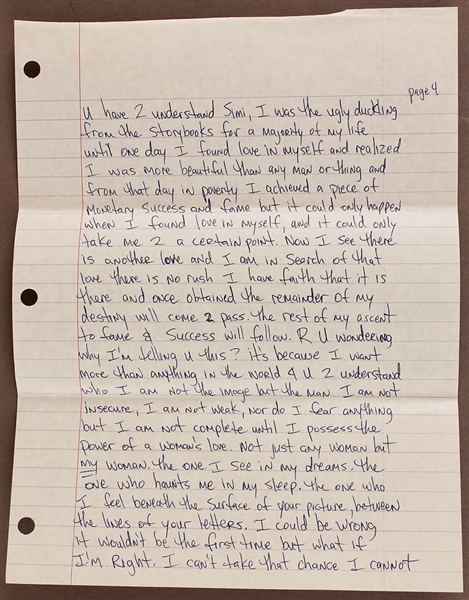 page 4
U have 2 understand Simi, I was the ugly duckling
from the storybooks for a majority of my life
until one day I found love in myself and realized
I was more beautiful than any man or thing and
from that day in poverty I achieved a piece of
Monetary success and fame but it could only happen
when I found love in myself, and it could only
take me 2 a certain point. Now I see there
is another love and I am in search of that
love there is no rush I have faith that it is
there and once obtained the remainder of my
destiny will come 2 pass. The rest of my ascent
to fame & Success will follow. R U wondering
why I'm telling u this? it's because I want
more than anything in the world 4 U 2 understand
who I am not the image but the man. I am not
insecure, I am not weak, nor do I fear anything
but I am not complete until I possess the
power of a woman's love. Not just any woman but
my woman. The one I see in my dreams. The
one who haunts me in my sleep. The one who
I feel beneath the surface of your picture, between
the lines of your letters. I could be wrong
it wouldn't be the first time but what if
I'm Right. I can't take that chance I cannot